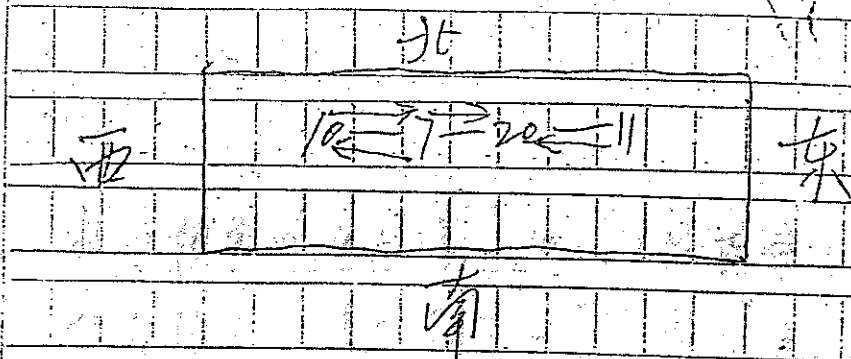 北
西 10 7 20 11 东
南